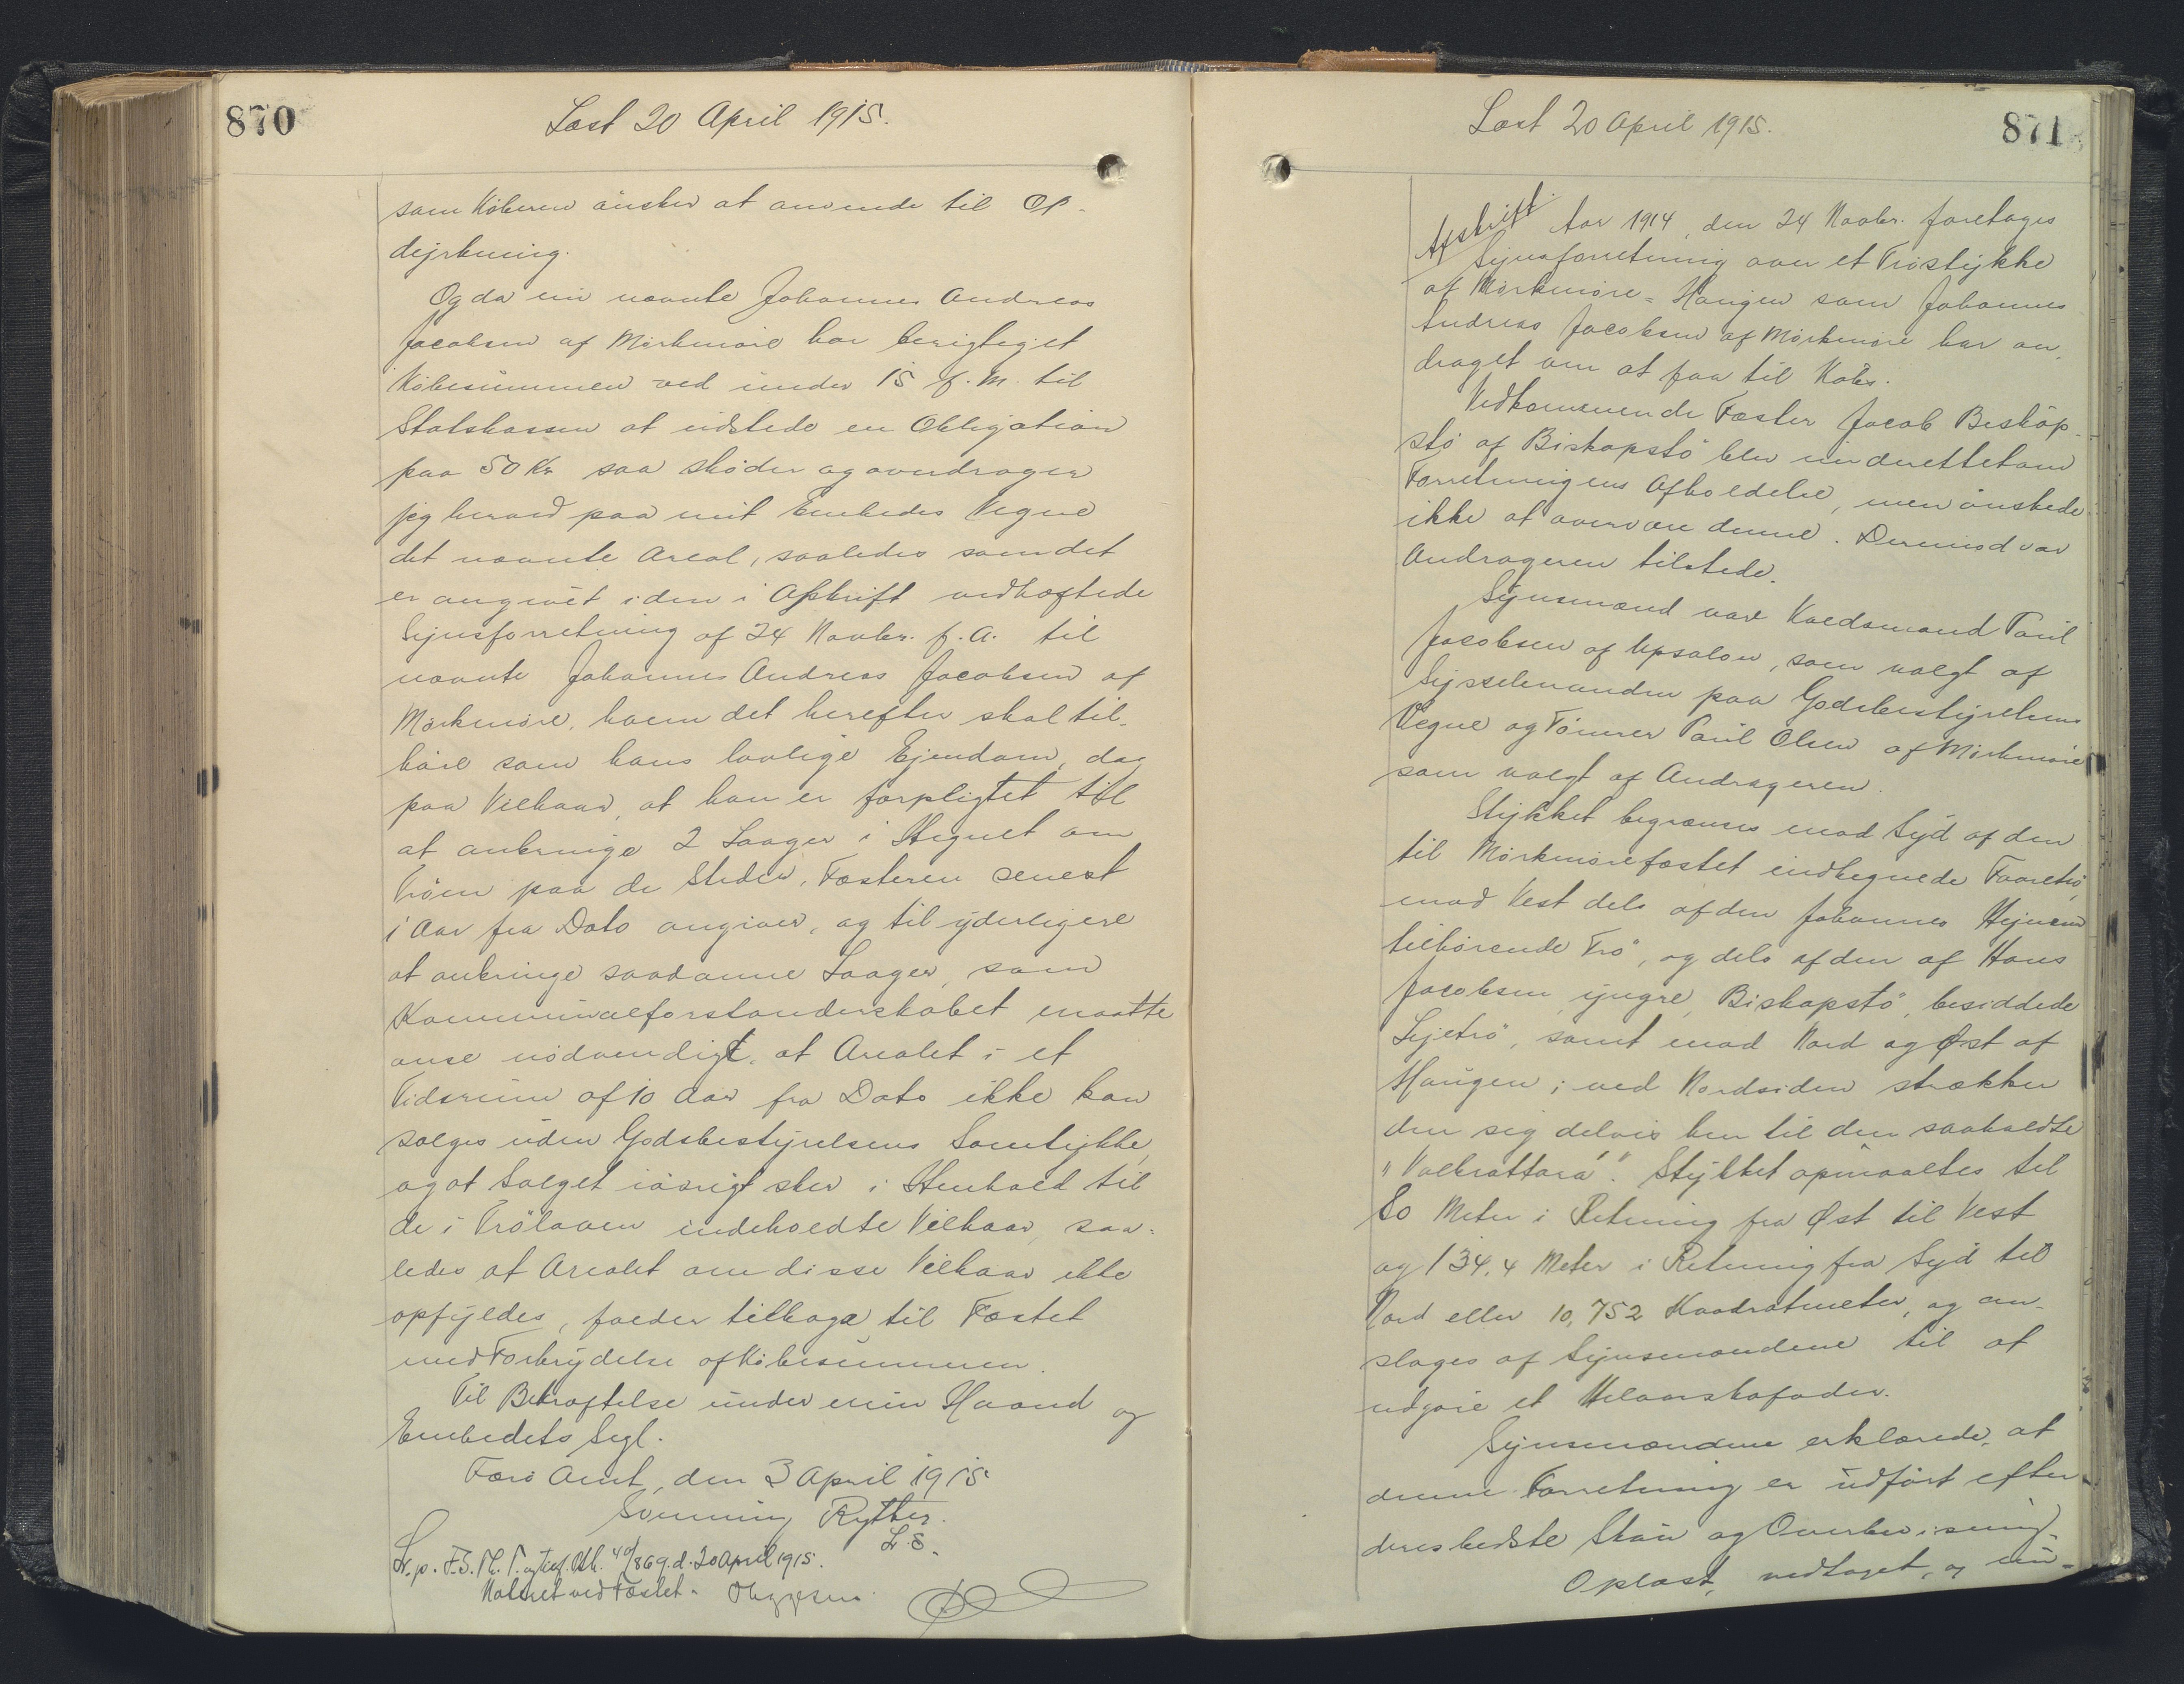 870
Læst 20 April 1915.
som Køberen ønsker at anvende til Op-
dyrkning.
Og da nu nævnte Johannes Andreas
Jacobsen af Mørkenøre har berigtiget
Købesummen ved under 15 f. M. til
Statskassen at udstede en Obligation
paa 50 Kr saa skøder og overdrager
jeg herved paa mit Embedes Vegne
det nævnte Areal, saaledes som det
er angivet i den i Afskrift vedhæftede
Synsforretning af 24 Novbr. f. A. til
nævnte Johannes Andreas Jacobsen af
Mørkenøre, hvem det herefter skal til-
høre som hans lovlige Ejendom, dog
paa Vilkaar, at han er forpligtet til
at anbringe 2 Laager i Hegnet om
Trøen paa de Steder, Fæsteren senest
i Aar fra Dato angiver, og til yderligere
at anbringe saadanne Laager, som
Kommunalforstanderskabet maatte
anse nødvendigt, at Arealet i et
Tidsrum af 10 Aar fra Dato ikke kan
sælges uden Godsbestyrelsens Samtykke,
og at Salget iøvrigt sker i Henhold til
de i Trøloven indeholdte Vilkaar, saa-
ledes at Arealet om disse Vilkaar ikke
opfyldes, falder tilbage til Fæstet
med Forbrydelse af Købesummen.
Til Bekræftelse under min Haand og
Embedets Segl.
Færø Amt, den 3 April 1915
Svenning Rytter.
L. S.
869. d. 20 April 1915.
Noteret ved Fæstet.
Læst 20 April 1915.
871
Afskrift Aar 1914, den 24 Novbr. foretages
Synsforretning over et Trøstykke
af Mørkenøre-Haugen som Johannes
Andreas Jacobsen af Mørkenøre har an-
draget om at faa til Købs.
Vedkommende Fæster Jacob Biskop-
stø af Biskopstø blev underrettet om
Forretningens Afholdelse, men ønskede
ikke at overvære denne. Derimod var
Andrageren tilstede.
Synsmænd vare Kvedsmand Poul
Jacobsen af Upsalon, som valgt af
Sysselmanden paa Godsbestyrelsens
Vegne og Tømrer Poul Olsen af Mørkenøre
som valgt af Andrageren.
Stykket begrænses mod Syd af den
til Mørkenørefæstet indhegnede Faaretrø,
mod Vest dels af den Johannes Hejnesen
tilhørende Trø, og dels af den af Hans
Jacobsen, yngre, Biskopstø, besiddede
Lejetrø, samt mod Nord og Øst af
Haugen; ved Nordsiden strækker
den sig delvis hen til den saakaldte
"Valbrattará". Stykket opmaaltes til
80 Meter i Retning fra Øst til Vest
og 134,4 Meter i Retning fra Syd til
Nord eller 10,752 Kvadratmeter, og an-
slages af Synsmændene til at
udgøre et Helaarskofoder.
Synsmændene erklærede, at
denne Forretning er udført efter
deres bedste Skøn og Overbevisning.
Oplæst, vedtaget, og un-